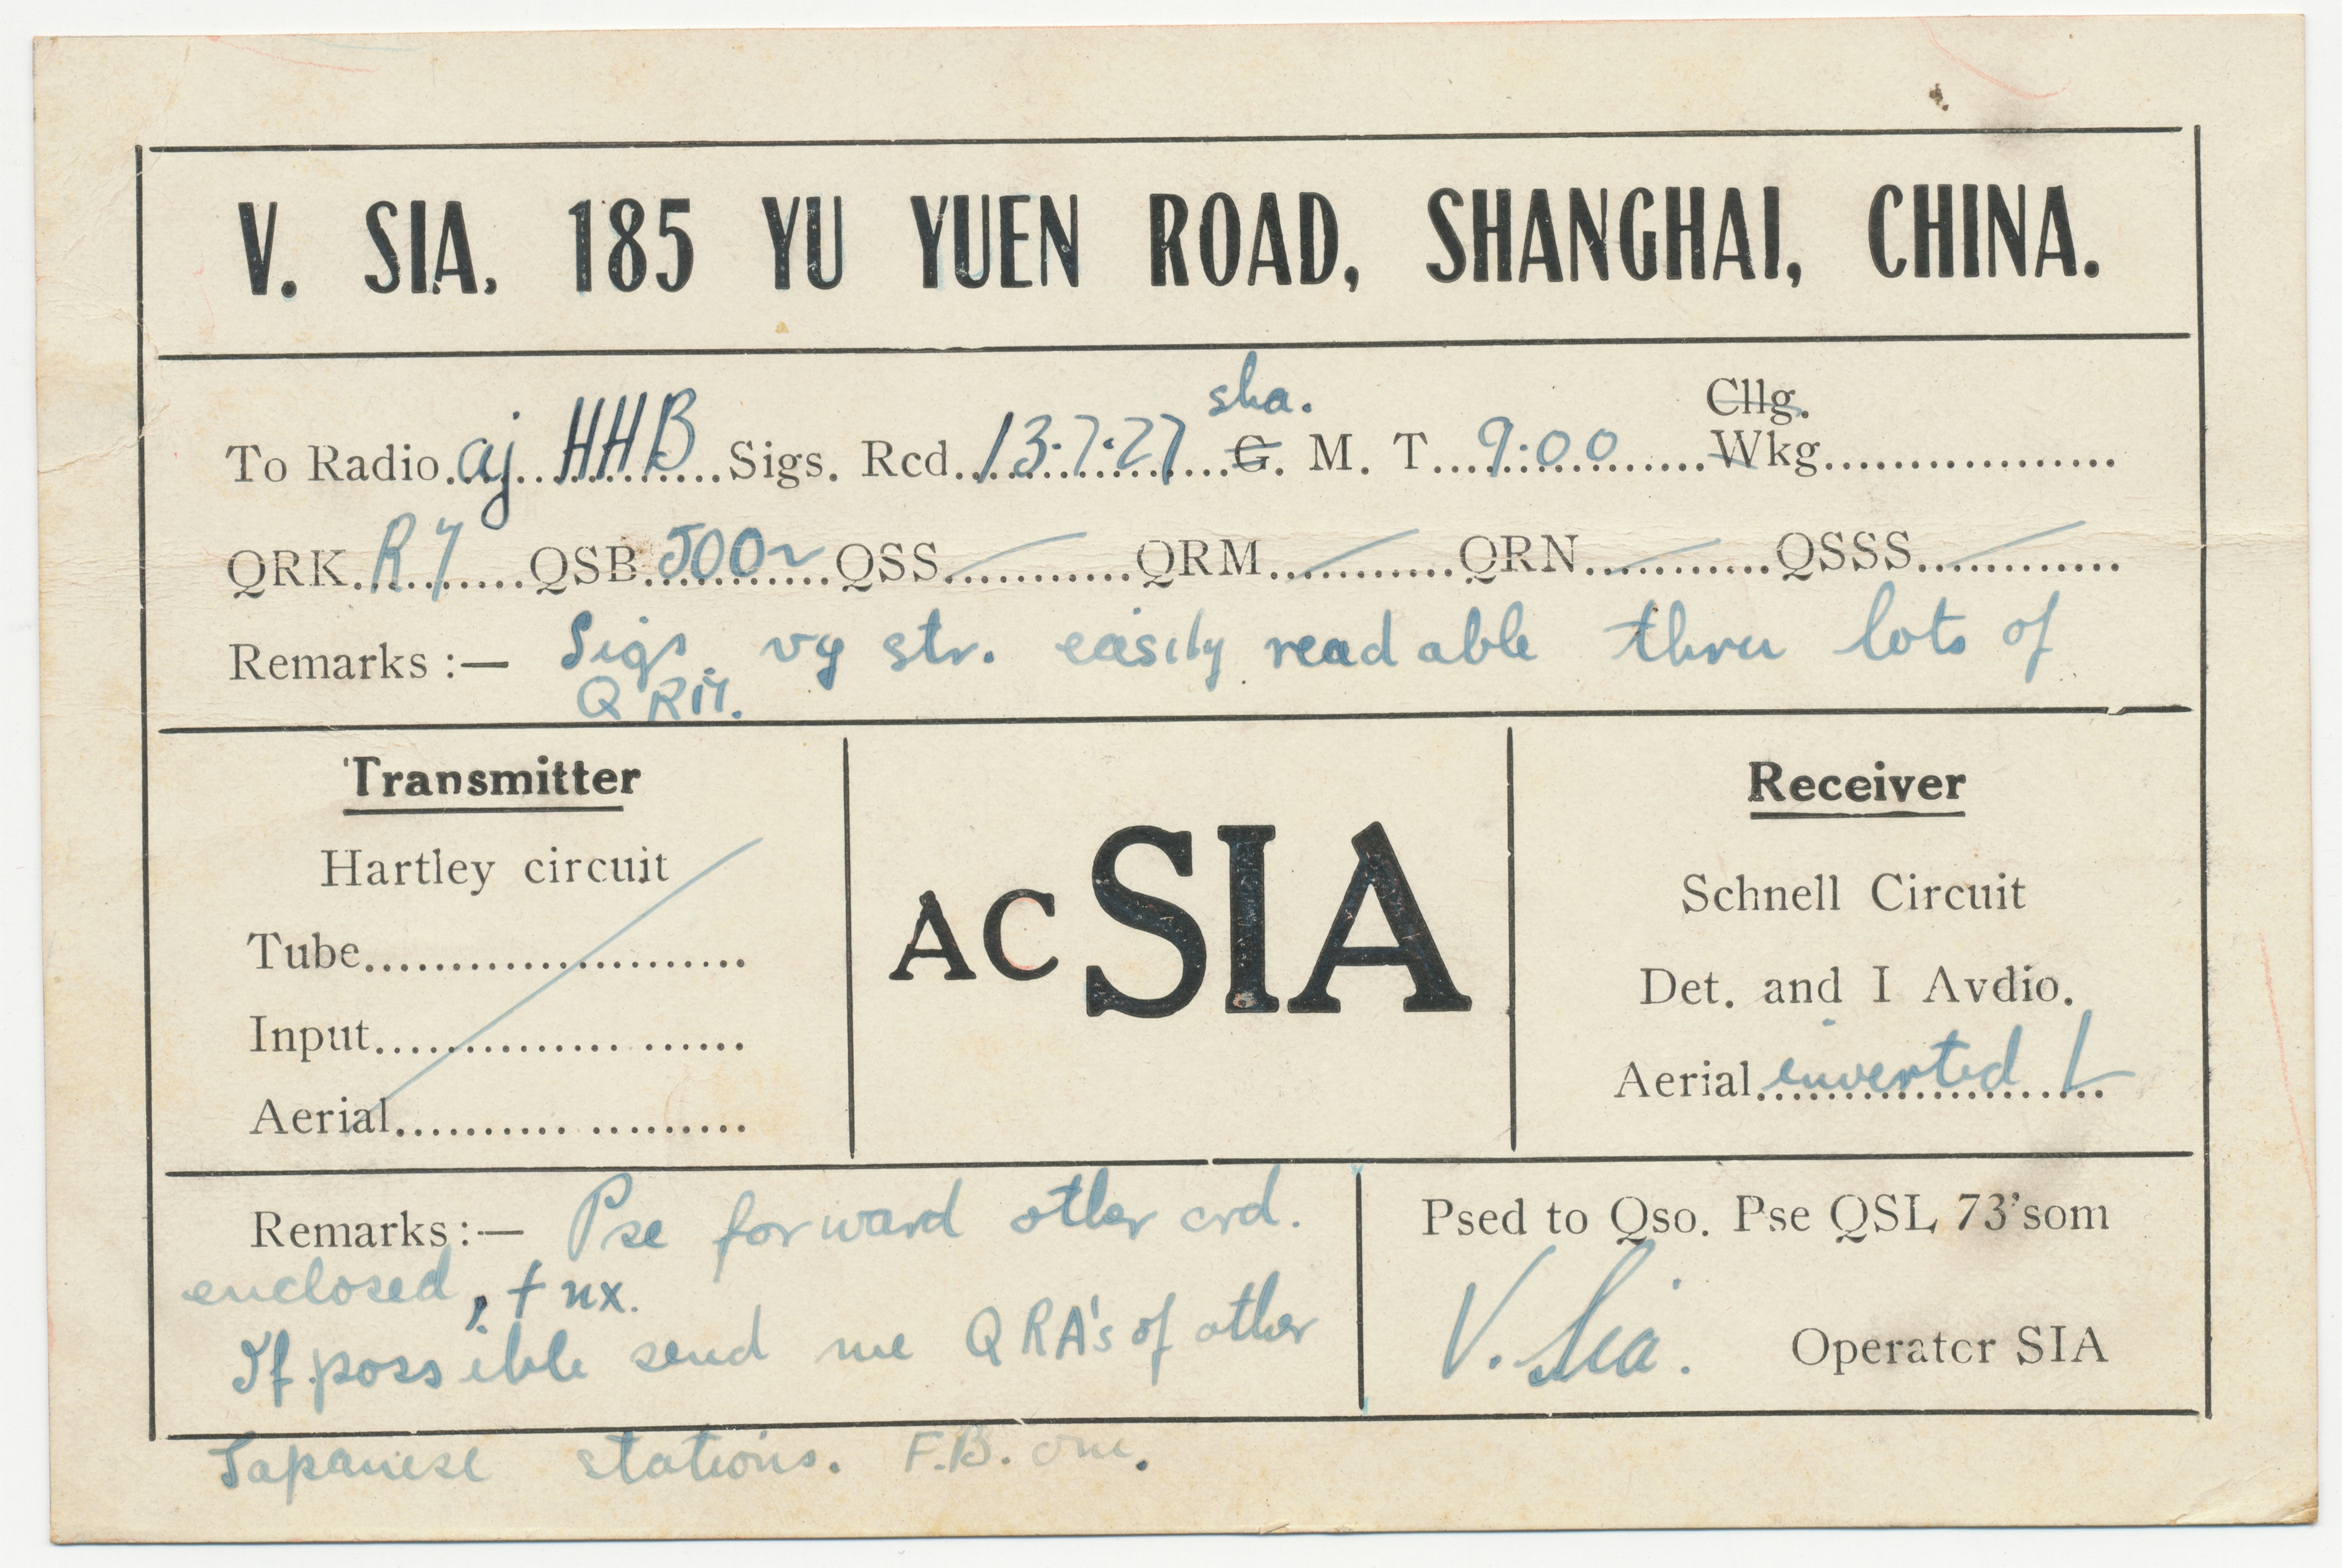 V. SIA. 185 YU YUEN ROAD, SHANGHAI, CHINA.
sha.
Cllg.
To Radio aj HHB Sigs. Rcd. 13.7.27 G. M. T. 9:00 Wkg.
QRK R7 QSB 500~ QSS QRM QRN QSSS
Remarks :— Sigs. vy str. easily readable thru lots of
QRM.
Transmitter
Hartley circuit
Tube
Input
Aerial
AC SIA
Receiver
Schnell Circuit
Det. and I Avdio.
Aerial inverted L
Remarks :— Pse forward other crd.
enclosed, tnx.
If possible send me QRA's of other
Japanese stations. F.B. om.
Psed to Qso. Pse QSL 73'som
V. Sia. Operator SIA